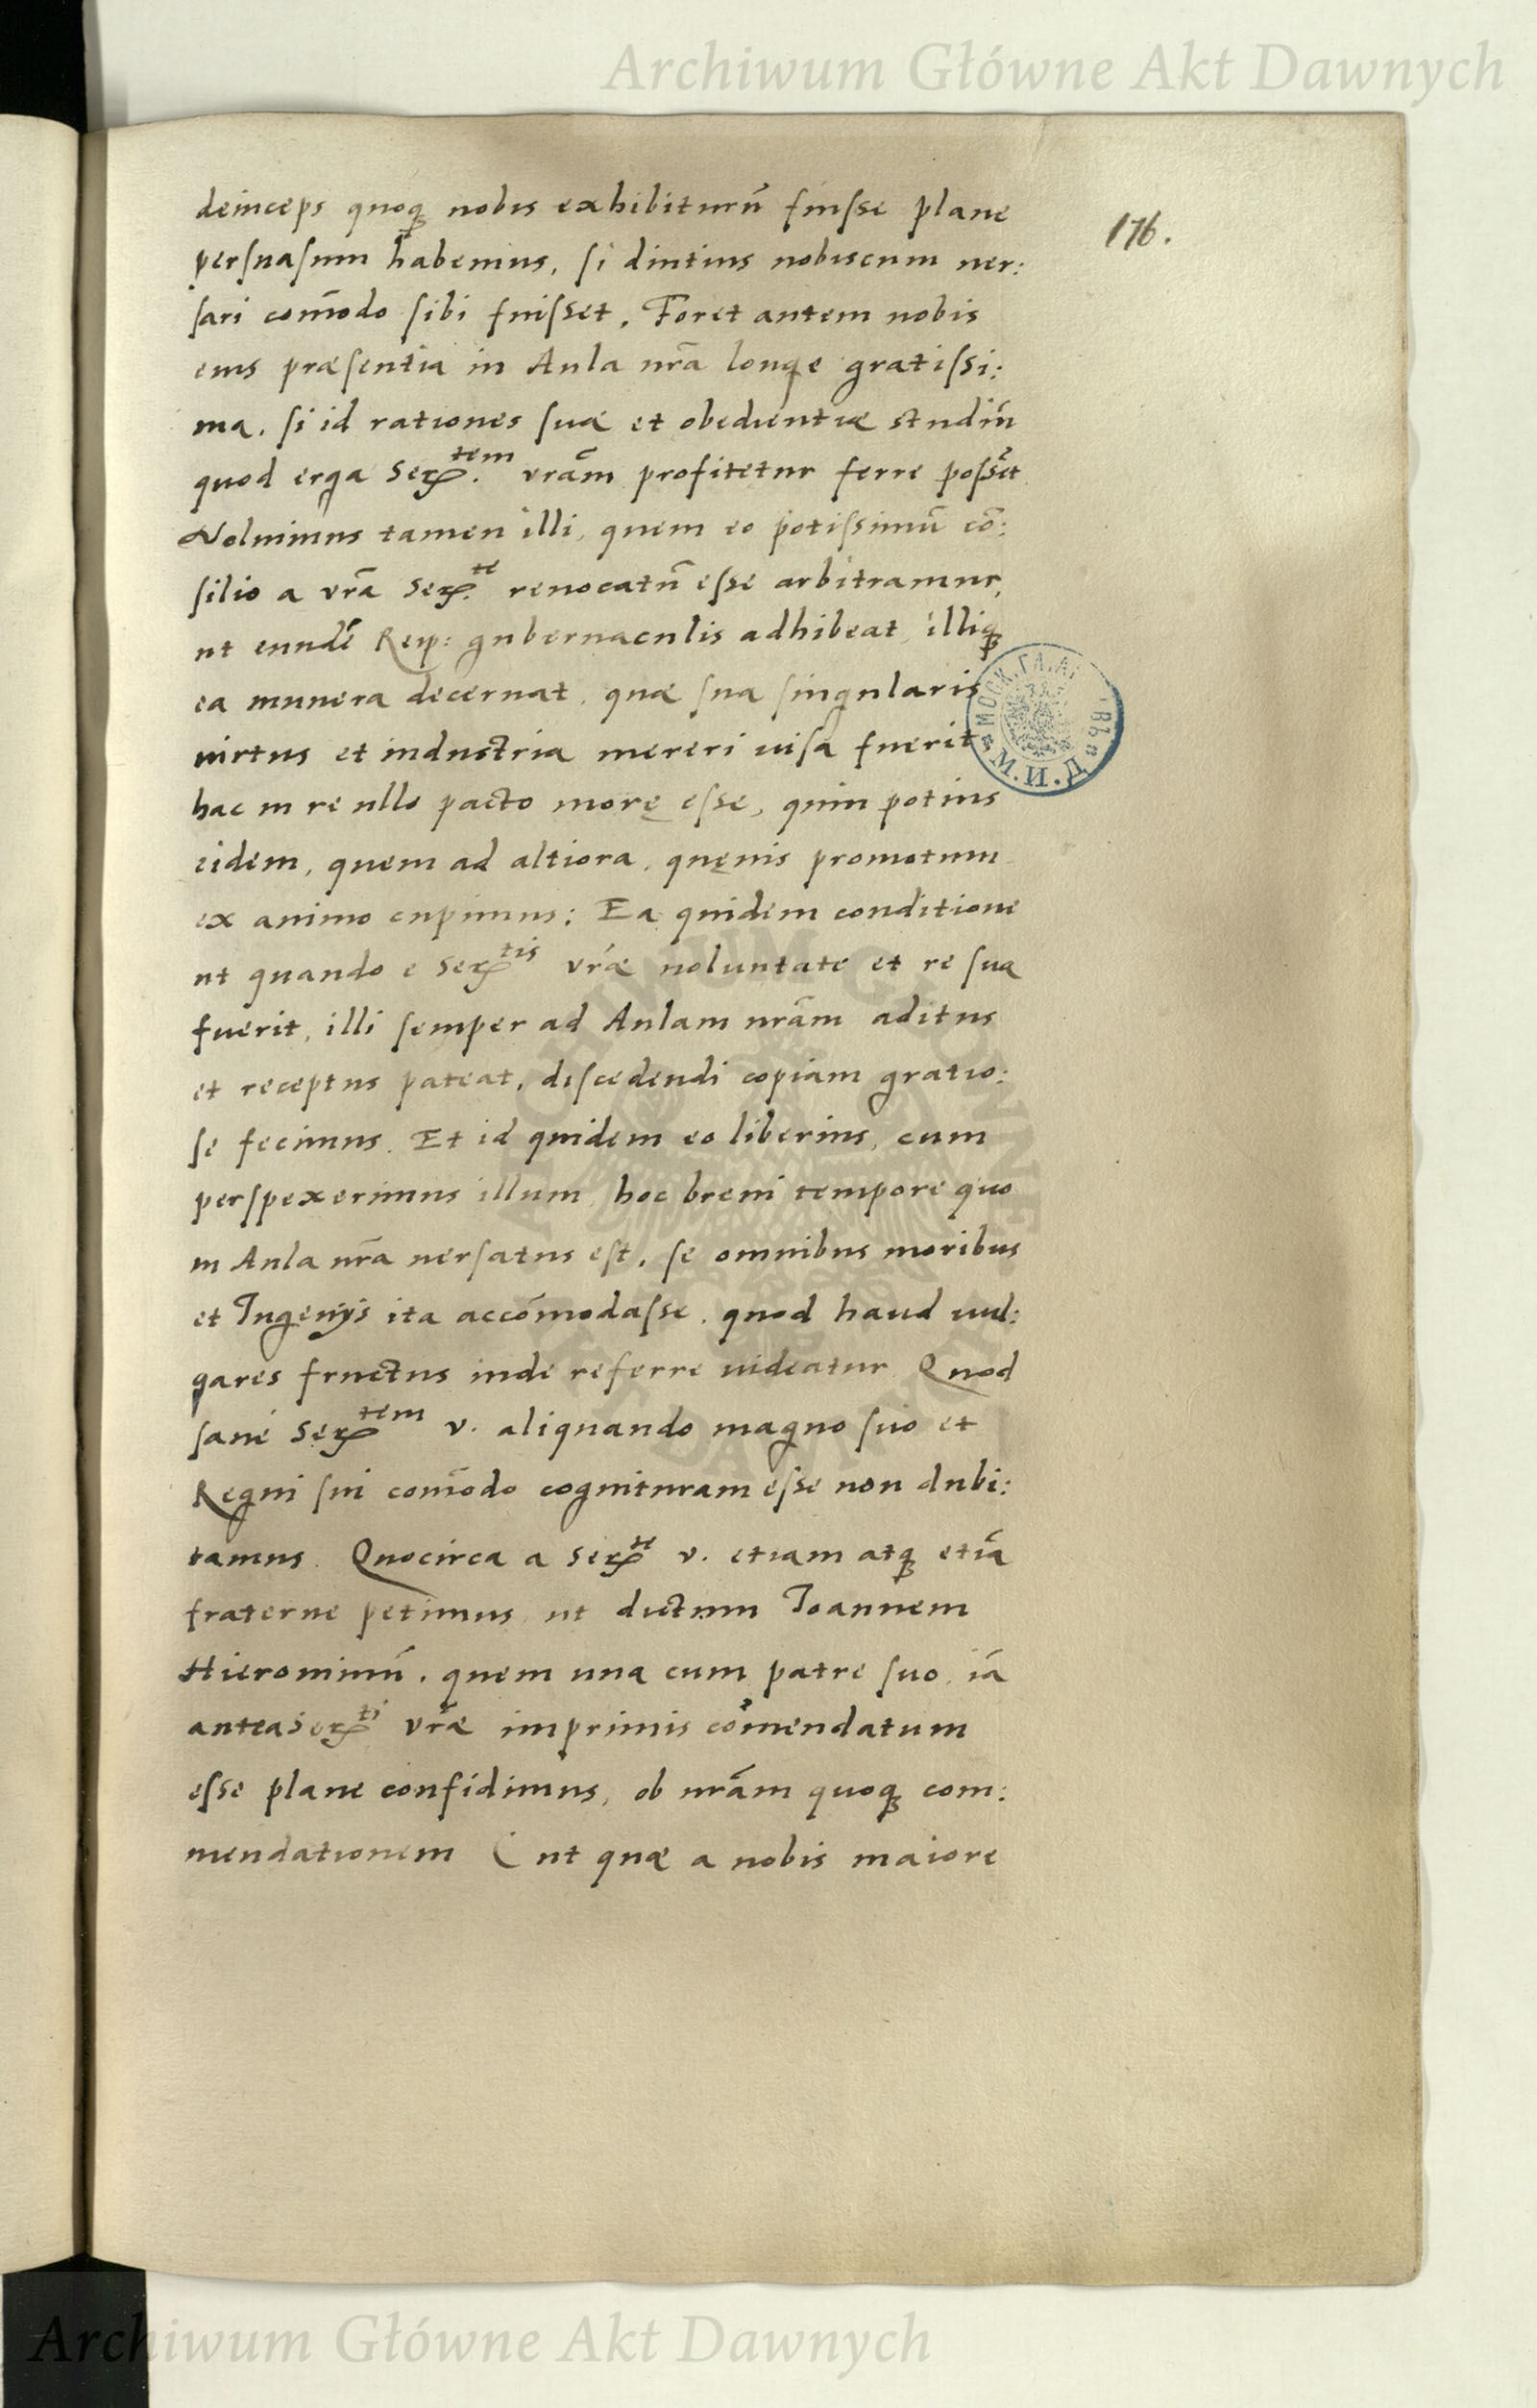 Archiwum Główne Akt Dawnych
176.
deinceps quoq̃ nobis exhibiturũ fuiſse plane
perſuaſum habemus, ſi diutius nobiscum uer:
ſari com̃odo ſibi fuiſset. Foret autem nobis
eius præſentia in Aula nr̃a longe gratiſsi:
ma, ſi id rationes ſuæ et obedientiæ studiũ
quod erga Ser.^tem vrãm profitetur ferre poſset
Noluimus tamen illi, quem eo potiſsimũ cõ:
silio a vr̃a Ser.^te reuocatũ eſse arbitramur,
ut eundẽ Reip: gubernaculis adhibeat illiq̃
ea munera decernat, quæ ſua ſingularis
uirtus et industria mereri uiſa fuerit
hac in re ullo pacto morę eſse, quin potius
eidem, quem ad altiora, quęuis promotum
ex animo cupimus: Ea quidem conditione
ut quando e Ser^tis vr̃æ uoluntate et re ſua
fuerit, illi ſemper ad Aulam nrãm aditus
et receptus pateat, discedendi copiam gratio:
ſe fecimus. Et id quidem eo liberius, cum
perſpexerimus illum, hoc breui tempore quo
in Aula nr̃a uerſatus eſt, ſe omnibus moribus
et Ingenijs ita accõmodaſse, quod haud uul:
gares fructus inde referre uideatur Quod
ſane Ser^tem v. aliquando magno ſuo et
Regni ſui com̃odo cognituram eſse non dubi:
tamus. Quocirca a Ser^te v. etiam atq̃ etiã
fraterne petimus ut dictum Ioannem
Hierominũ, quem una cum patre ſuo iã
antea Ser^ti vr̃æ imprimis cõmendatum
eſse plane confidimus, ob nrãm quoq̃ com:
mendationem ( ut quæ a nobis maiore
МОСК.ГЛ.А
М.И.Д.
Archiwum Główne Akt Dawnych